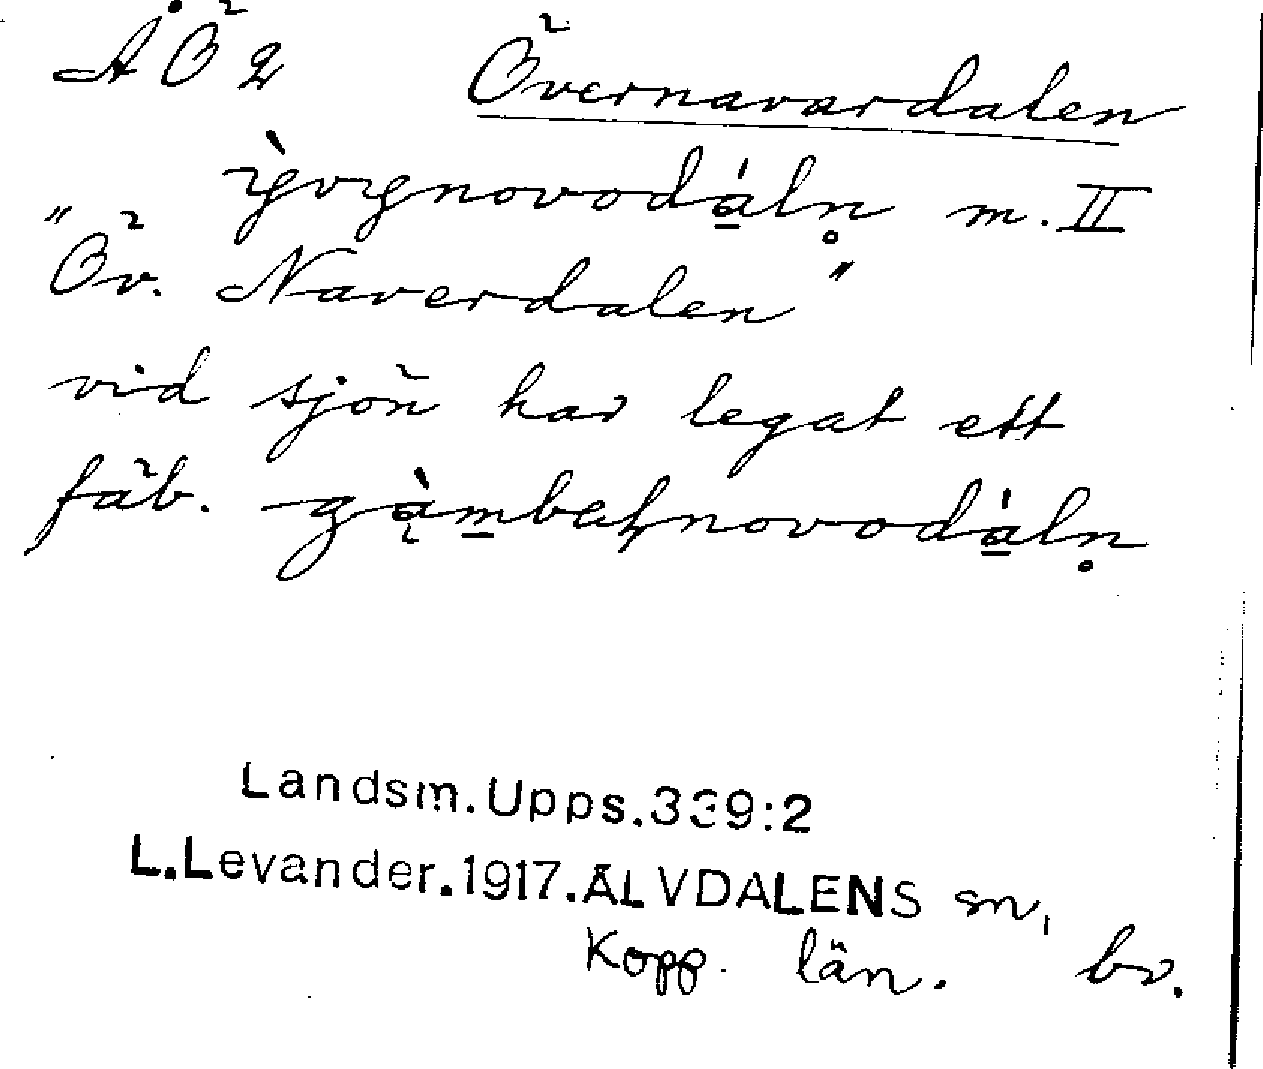 ÅÖ2 Övernavardalen
ỳvynovodáln̥ m. II
"Öv. Naverdalen"
vid sjön har legat ett
fäb. gą̀mbalnovodáln̥
Landsm. Upps. 339:2
L. Levander. 1917. ÄLVDALENS sn,
Kopp. län. bv.